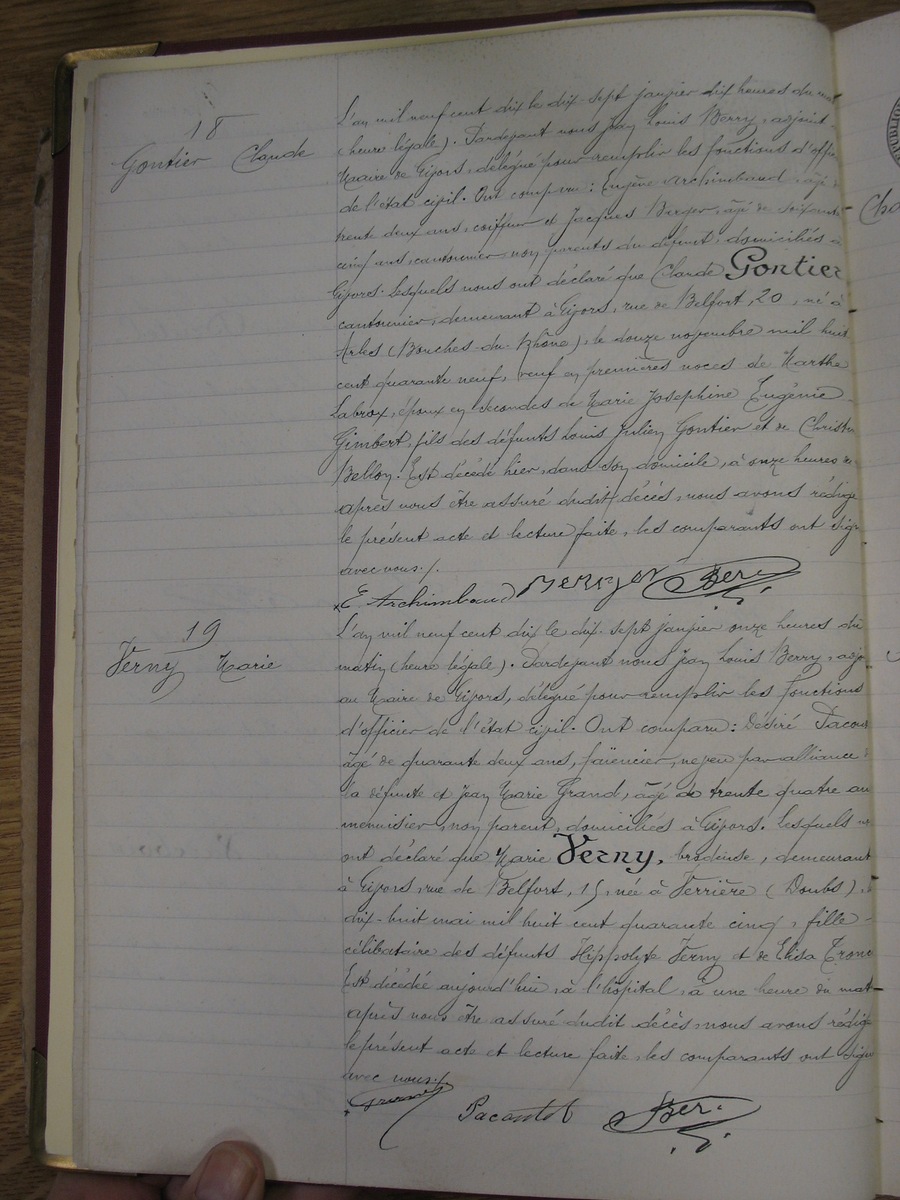 18
Gontier Claude
L'an mil neuf cent dix le dix-sept janvier dix heures du mat
(heure légale). Pardevant nous Jean Louis Berry, adjoint
Maire de Givors, délégué pour remplir les fonctions d'offi
de l'état civil. Ont comparu : Eugène Archimbaud, âgé d
trente deux ans, coiffeur et Jacques Berger, âgé de soixante
cinq ans, cantonnier, non parents du défunt, domiciliés à
Givors. Lesquels nous ont déclaré que Claude Gontier
cantonnier, demeurant à Givors, rue de Belfort, 20, né à
Arles (Bouches-du-Rhône), le douze novembre mil huit
cent quarante neuf, veuf en premières noces de Marthe
Labrox, époux en secondes de Marie Joséphine Eugénie
Gimbert, fils des défunts Louis Julien Gontier et de Christi
Bellon. Est décédé hier, dans son domicile, à onze heures
après nous être assuré dudit décès, nous avons rédigé
le présent acte et lecture faite, les comparants ont sign
avec nous./.
E Archimbaud Berger Ber
19
Verny Marie
L'an mil neuf cent dix le dix-sept janvier onze heures du
matin (heure légale). Pardevant nous Jean Louis Berry, adjo
au Maire de Givors, délégué pour remplir les fonctions
d'officier de l'état civil. Ont comparu : Désiré Pacou
âgé de quarante deux ans, faïencier, neveu par alliance d
la défunte et Jean Marie Grand, âgé de trente quatre an
menuisier, non parent, domiciliés à Givors. Lesquels no
ont déclaré que Marie Verny, brodeuse, demeurant
à Givors, rue de Belfort, 15, née à Verrière (Doubs), l
dix-huit mai mil huit cent quarante cinq, fille
célibataire des défunts Hippolyte Verny et de Elisa Tronc
Est décédée aujourd'hui, à l'hôpital, à une heure du mat
après nous être assuré dudit décès, nous avons rédigé
le présent acte et lecture faite, les comparants ont sign
avec nous./.
Pacoutot Ber